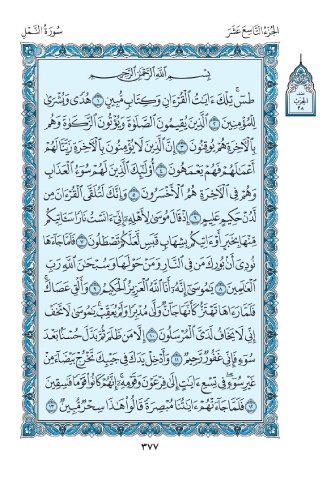 الجزء التاسع عشر
سورة النمل
الحزب
٣٨
بِسْمِ اللَّهِ الرَّحْمَٰنِ الرَّحِيمِ
طسٓ ۚ تِلْكَ ءَايَٰتُ الْقُرْءَانِ وَكِتَابٍ مُّبِينٍ ١ هُدًى وَبُشْرَىٰ
لِلْمُؤْمِنِينَ ٢ الَّذِينَ يُقِيمُونَ الصَّلَوٰةَ وَيُؤْتُونَ الزَّكَوٰةَ وَهُم
بِالْءَاخِرَةِ هُمْ يُوقِنُونَ ٣ إِنَّ الَّذِينَ لَا يُؤْمِنُونَ بِالْءَاخِرَةِ زَيَّنَّا لَهُمْ
أَعْمَٰلَهُمْ فَهُمْ يَعْمَهُونَ ٤ أُولَٰٓئِكَ الَّذِينَ لَهُمْ سُوٓءُ الْعَذَابِ
وَهُمْ فِي الْءَاخِرَةِ هُمُ الْأَخْسَرُونَ ٥ وَإِنَّكَ لَتُلَقَّى الْقُرْءَانَ مِن
لَّدُنْ حَكِيمٍ عَلِيمٍ ٦ إِذْ قَالَ مُوسَىٰ لِأَهْلِهِۦٓ إِنِّيٓ ءَانَسْتُ نَارًا سَـَٔاتِيكُم
مِّنْهَا بِخَبَرٍ أَوْ ءَاتِيكُم بِشِهَابٍ قَبَسٍ لَّعَلَّكُمْ تَصْطَلُونَ ٧ فَلَمَّا جَآءَهَا
نُودِيَ أَنۢ بُورِكَ مَن فِي النَّارِ وَمَنْ حَوْلَهَا وَسُبْحَٰنَ اللَّهِ رَبِّ
الْعَٰلَمِينَ ٨ يَٰمُوسَىٰٓ إِنَّهُۥٓ أَنَا اللَّهُ الْعَزِيزُ الْحَكِيمُ ٩ وَأَلْقِ عَصَاكَ ۚ
فَلَمَّا رَءَاهَا تَهْتَزُّ كَأَنَّهَا جَآنٌّ وَلَّىٰ مُدْبِرًا وَلَمْ يُعَقِّبْ ۚ يَٰمُوسَىٰ لَا تَخَفْ
إِنِّي لَا يَخَافُ لَدَيَّ الْمُرْسَلُونَ ١٠ إِلَّا مَن ظَلَمَ ثُمَّ بَدَّلَ حُسْنًۢا بَعْدَ
سُوٓءٍ فَإِنِّي غَفُورٌ رَّحِيمٌ ١١ وَأَدْخِلْ يَدَكَ فِي جَيْبِكَ تَخْرُجْ بَيْضَآءَ مِنْ
غَيْرِ سُوٓءٍ ۖ فِي تِسْعِ ءَايَٰتٍ إِلَىٰ فِرْعَوْنَ وَقَوْمِهِۦٓ ۚ إِنَّهُمْ كَانُوا قَوْمًا فَٰسِقِينَ
١٢ فَلَمَّا جَآءَتْهُمْ ءَايَٰتُنَا مُبْصِرَةً قَالُوا هَٰذَا سِحْرٌ مُّبِينٌ ١٣
٣٧٧